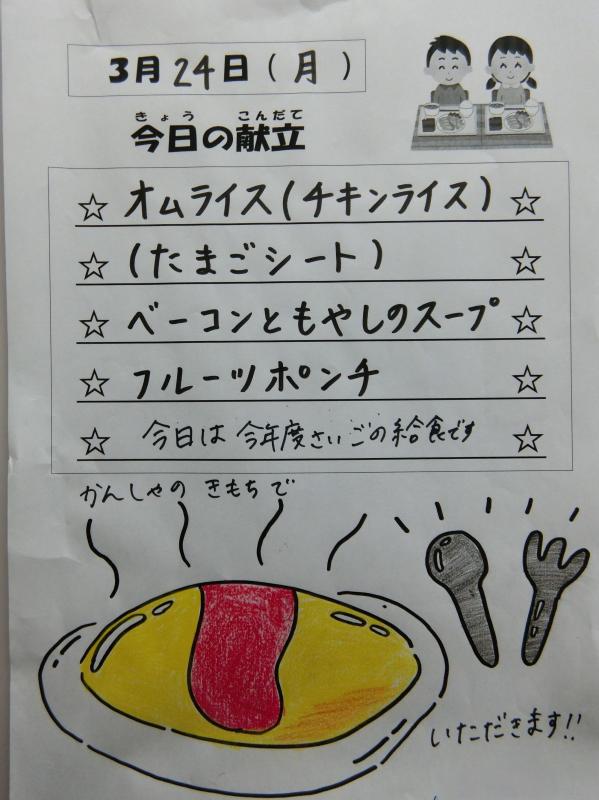 3月24日(月)
きょう こんだて
今日の献立
☆ オムライス(チキンライス) ☆
☆ (たまごシート) ☆
☆ ベーコンともやしのスープ ☆
☆ フルーツポンチ ☆
☆ 今日は今年度さいごの給食です ☆
かんしゃの きもちで
いただきます!!